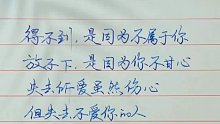 得不到，是因为不属于你
放不下，是因为你不甘心
失去所爱虽然伤心
但失去不爱你的人